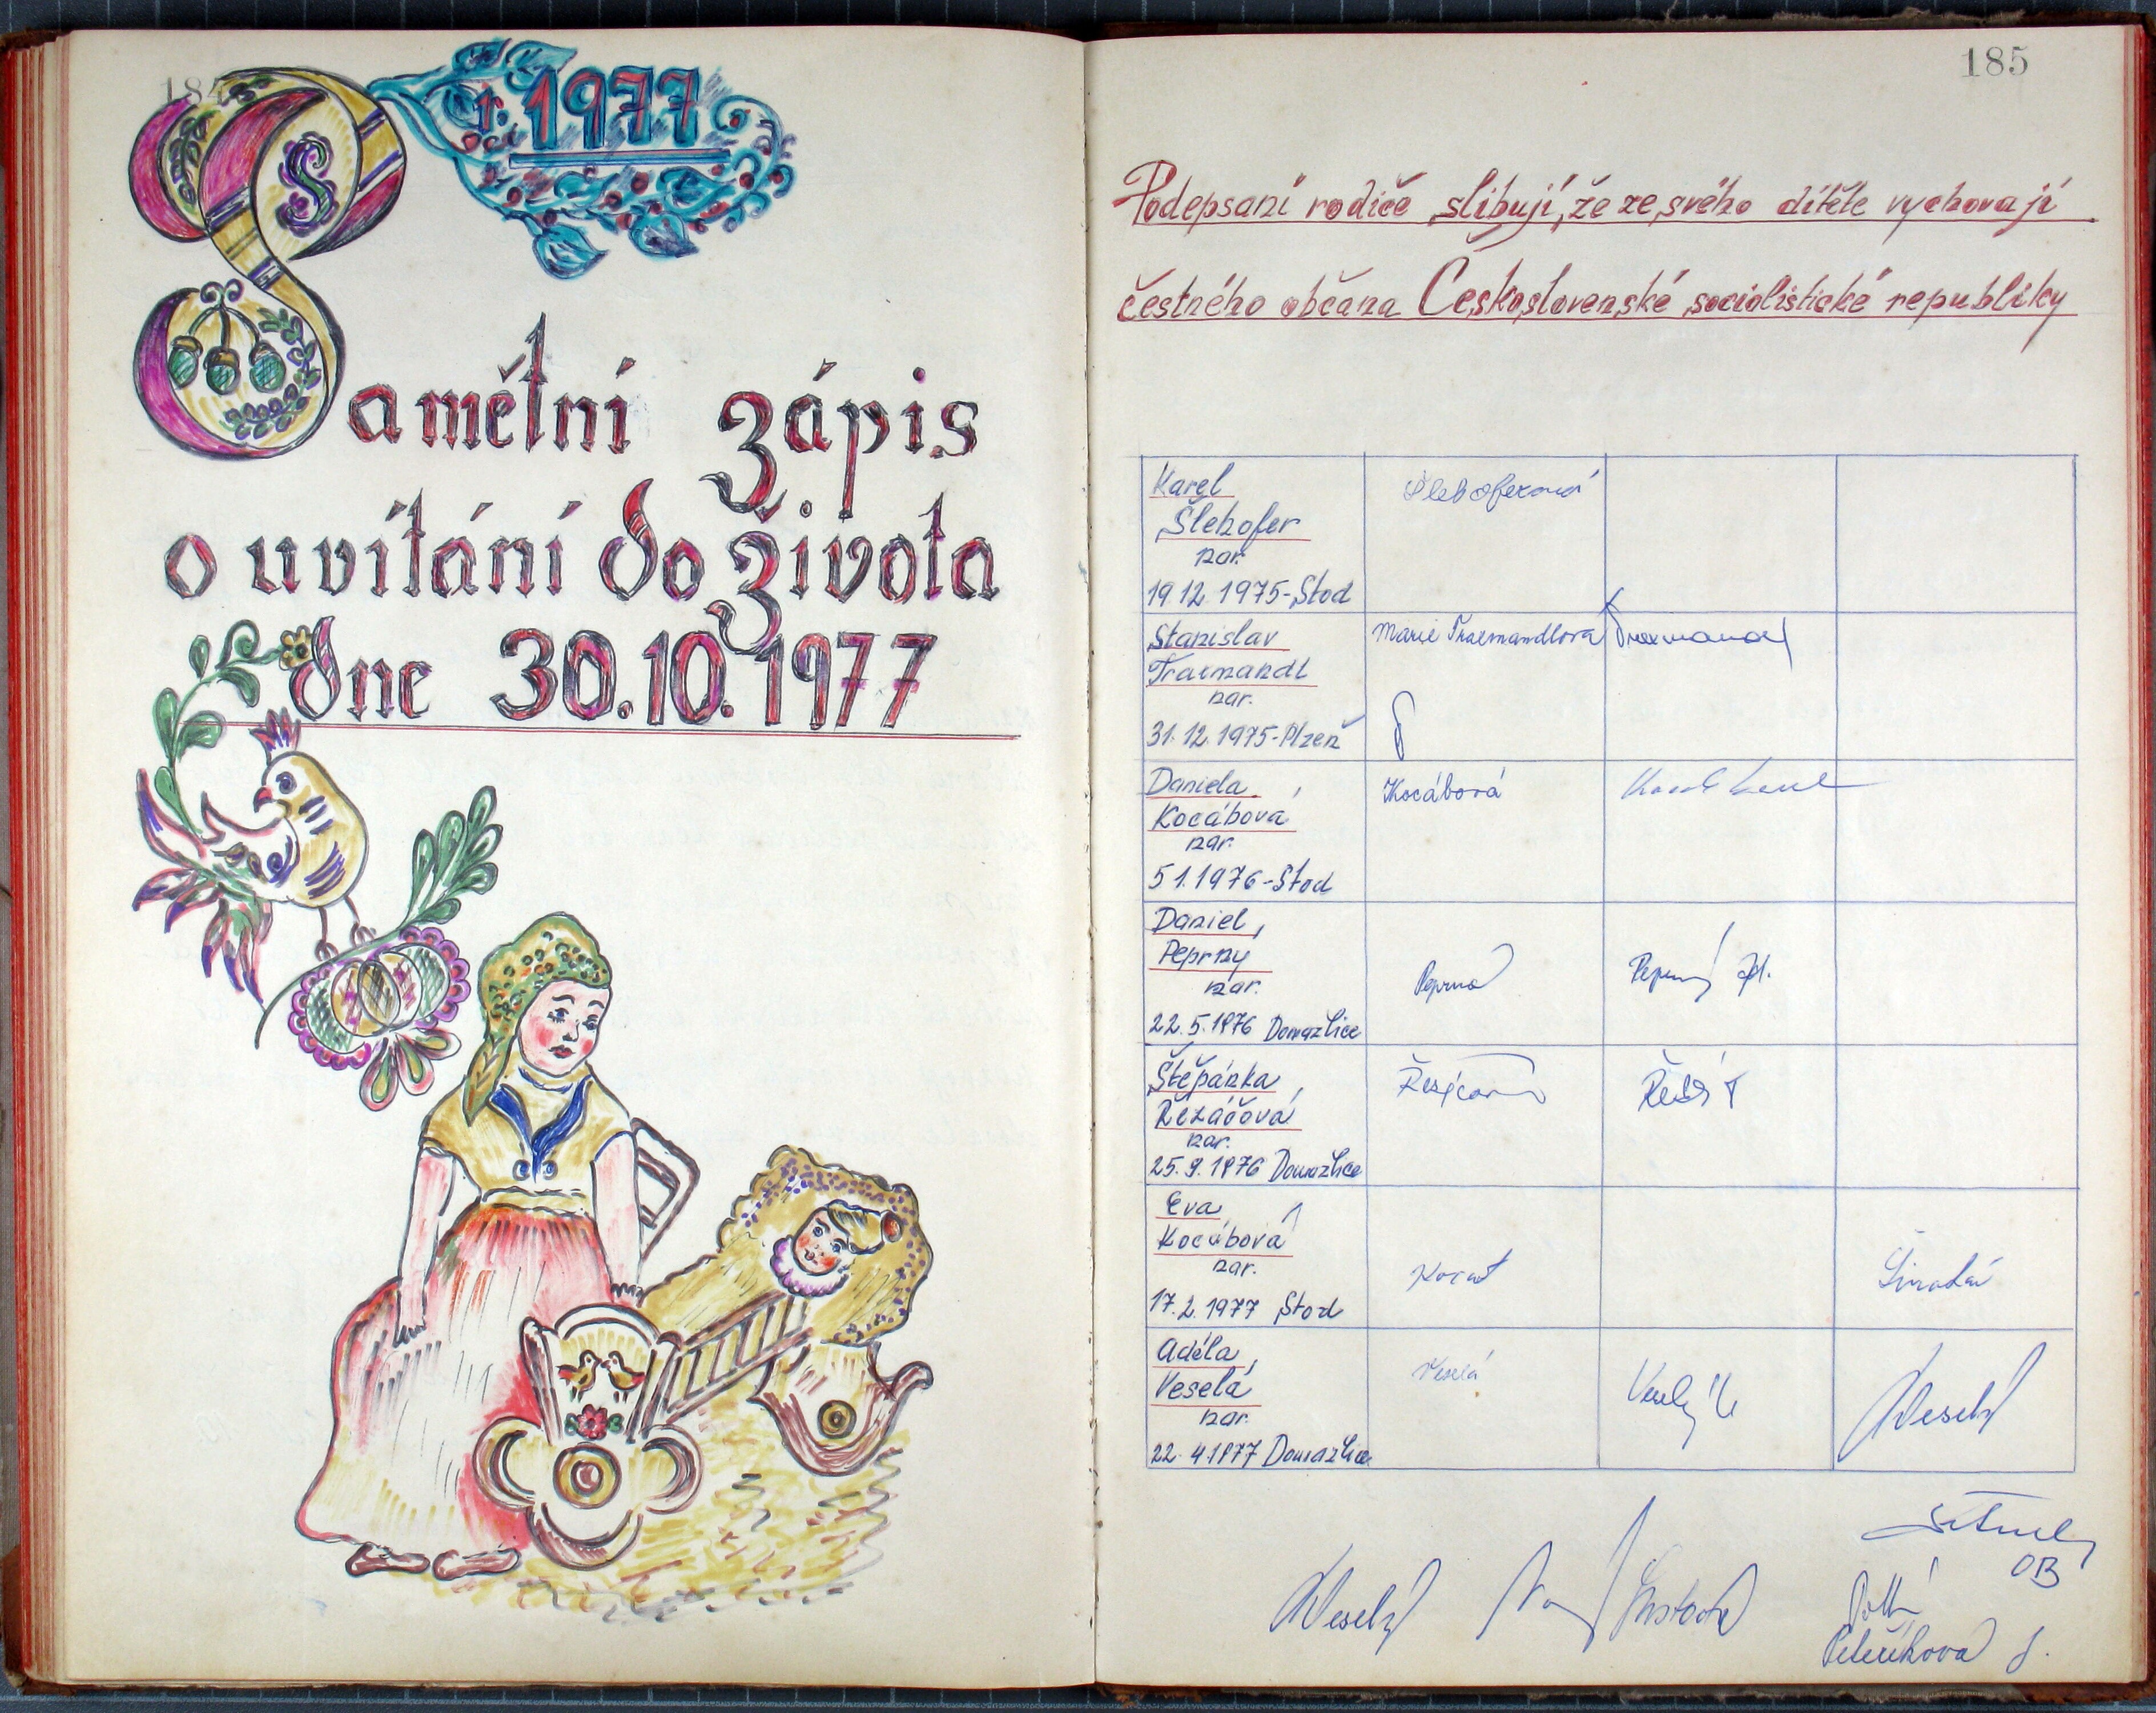 184
r. 1977
S
Pamětní zápis
o uvítání do života
dne 30.10.1977
185
Podepsaní rodiče slibují, že ze svého dítěte vychovají
čestného občana Československé socialistické republiky
Karel
Šlehofer
nar.
19.12.1975-Stod
Šlehoferová
Stanislav
Traxmandl
nar.
31.12.1975-Plzeň
Marie Traxmandlová
Traxmandl
Daniela
Kocábová
nar.
5 1.1976-Stod
Kocábová
Daniel
Peprný
nar.
22.5.1976 Domažlice
Peprná
Peprný
Štěpánka
Řezáčová
nar.
25.9.1976 Domažlice
Řezáčová
Eva
Kocábová
nar.
17.2.1977 Stod
Adéla
Veselá
nar.
22.4.1977 Domažlice
Veselá
Veselý
Veselý
Veselý
OB